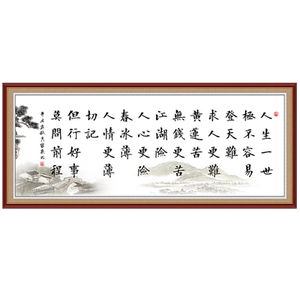 人生一世
極不容易
登天難
求人更難
黄蓮苦
無錢更苦
江湖險
人心更險
春冰薄
人情更薄
切記
但行好事
莫問前程